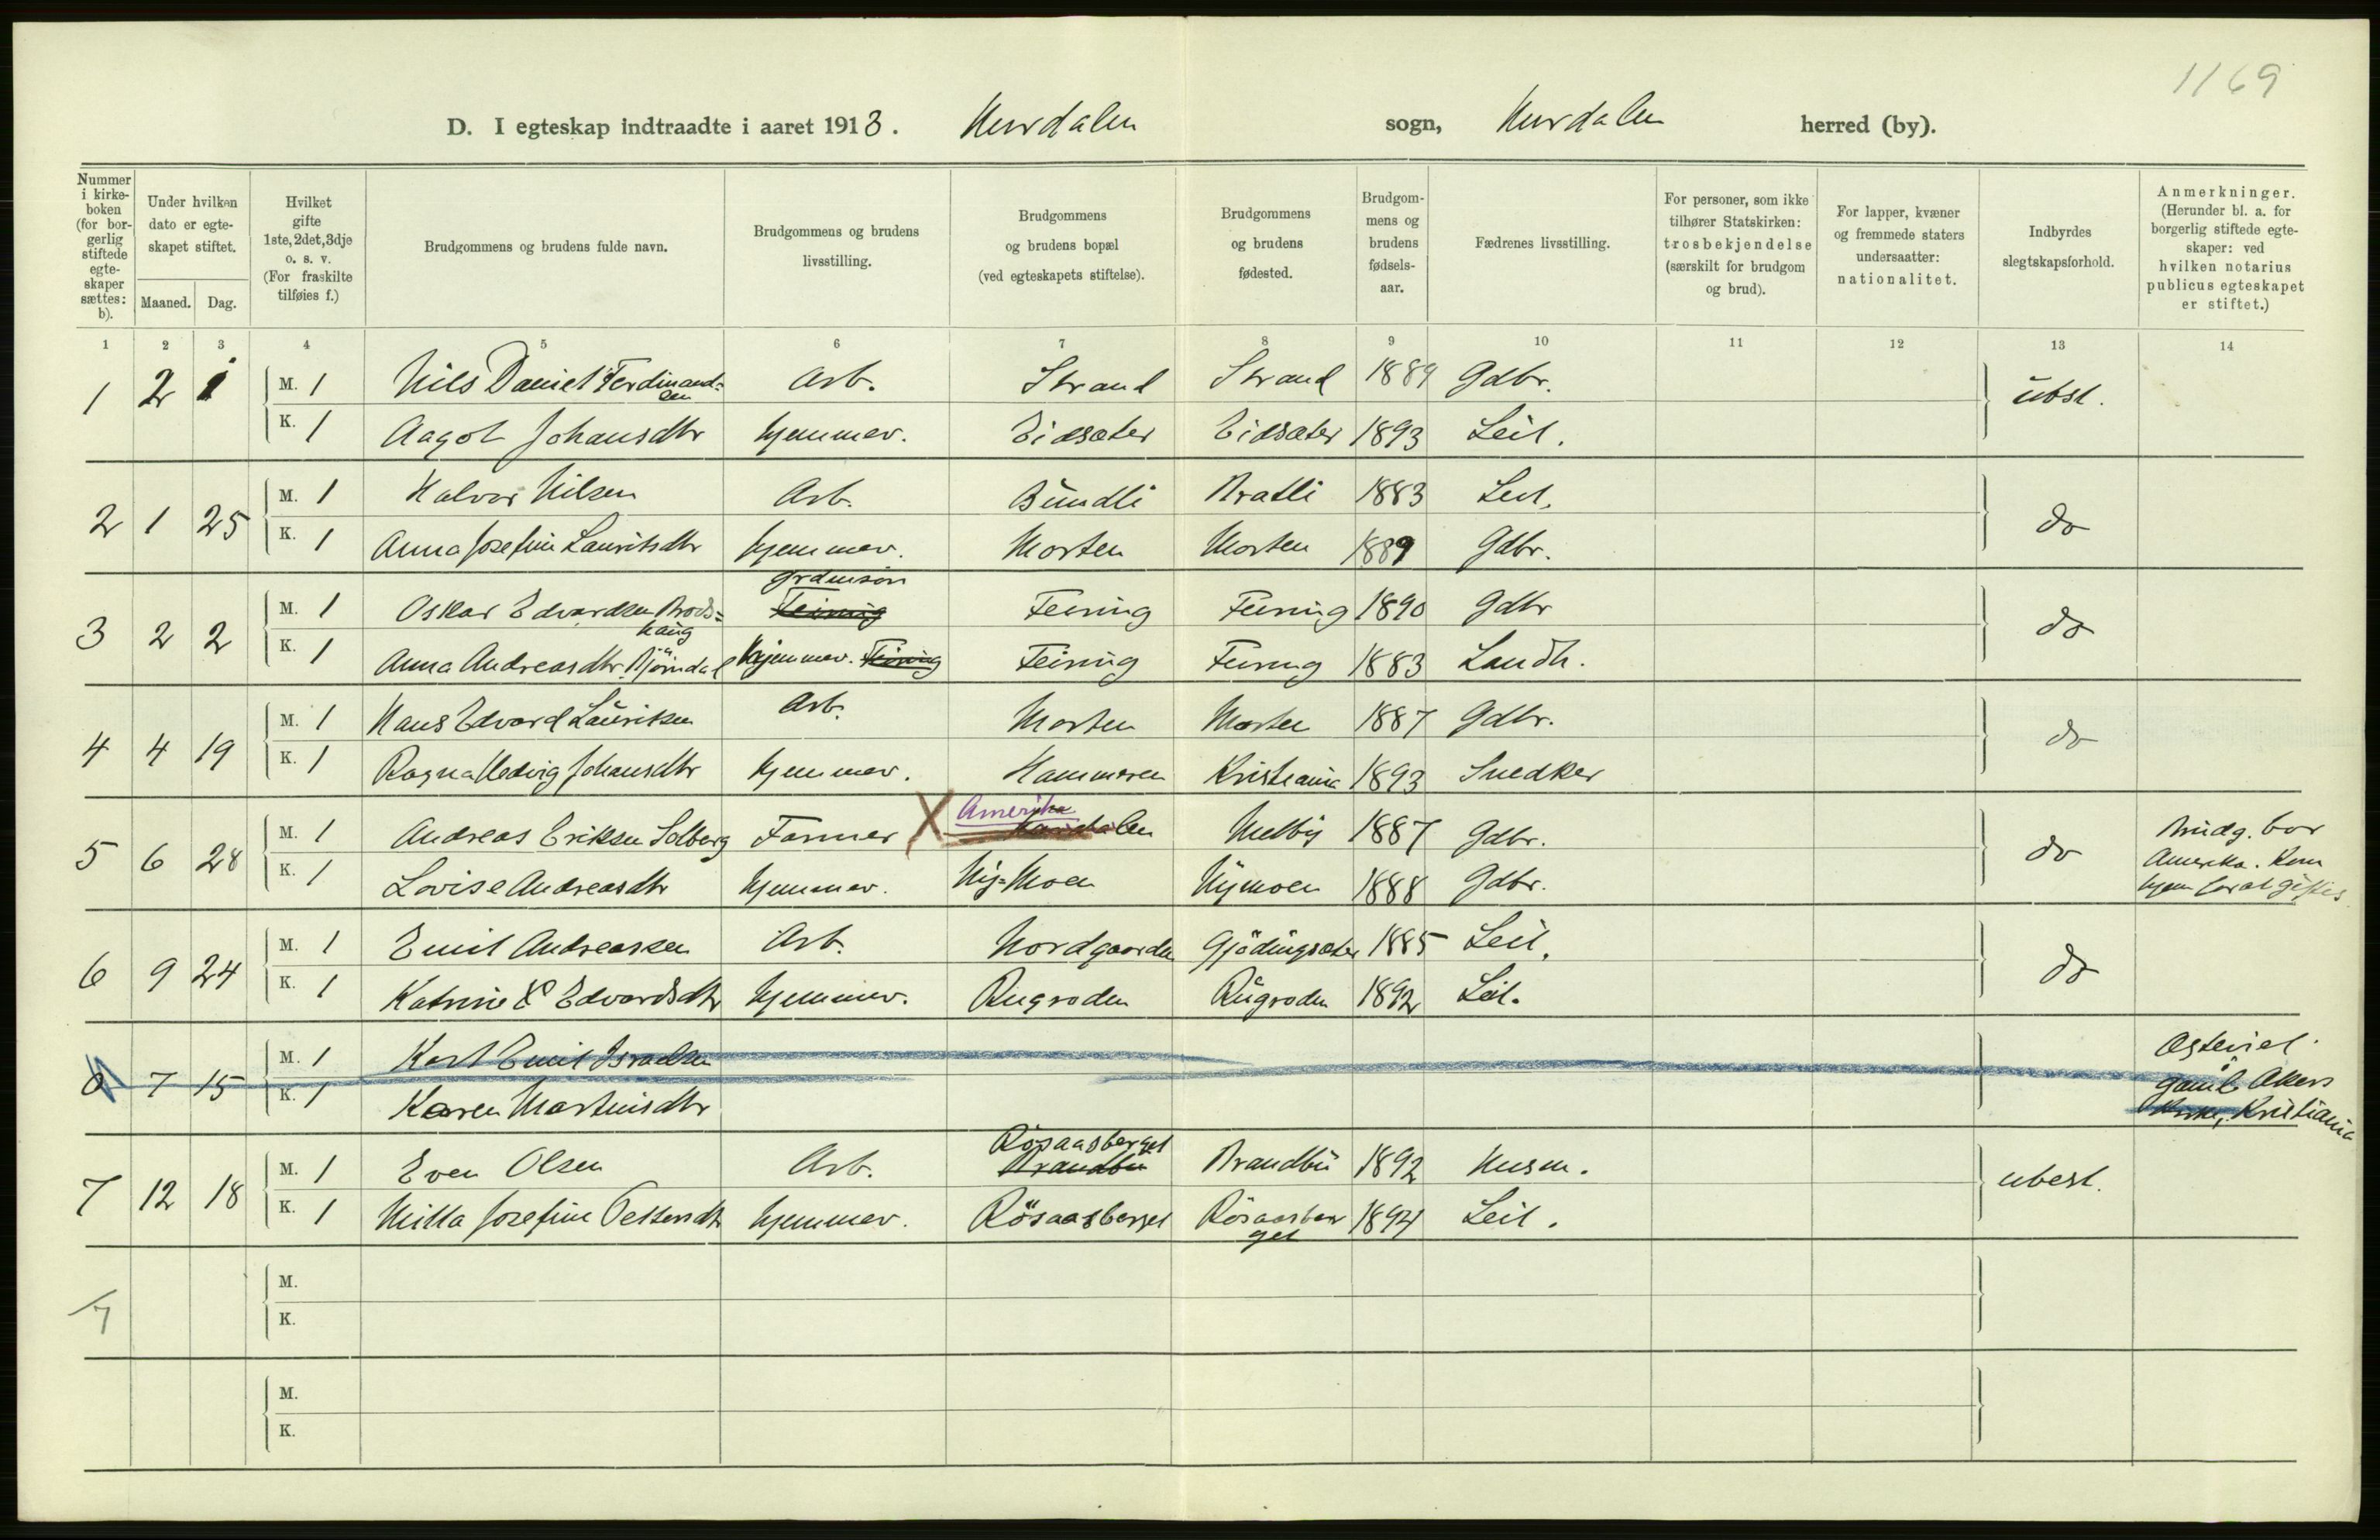 1169
D. I egteskap indtraadte i aaret 1913. Hurdalen sogn, Hurdalen herred (by).
Nummer i kirke-boken (for bor-gerlig stiftede egte-skaper sættes: b).
Under hvilken dato er egte-skapet stiftet.
Maaned. Dag.
Hvilket gifte 1ste, 2det, 3dje o. s. v. (For fraskilte tilføies f.)
Brudgommens og brudens fulde navn.
Brudgommens og brudens livsstilling.
Brudgommens og brudens bopæl (ved egteskapets stiftelse).
Brudgommens og brudens fødested.
Brudgom-mens og brudens fødsels-aar.
Fædrenes livsstilling.
For personer, som ikke tilhører Statskirken: trosbekjendelse (særskilt for brudgom og brud).
For lapper, kvæner og fremmede staters undersaatter: nationalitet.
Indbyrdes slegtskapsforhold.
Anmerkninger. (Herunder bl. a. for borgerlig stiftede egte-skaper: ved hvilken notarius publicus egteskapet er stiftet.)
1 2 3 4 5 6 7 8 9 10 11 12 13 14
1 2 1 M. 1 Nils Daniel Ferdinand-sen Arb. Strand Strand 1889 Gdbr. ubsl.
K. 1 Aagot Johansdtr hjemmev. Eidsæter Eidsæter 1893 Leil.
2 1 25 M. 1 Halvor Nilsen Arb. Bundli Bratli 1883 Leil. do
K. 1 Anna Josefine Lauritsdtr hjemmev. Morten Morten 1889 Gdbr.
3 2 2 M. 1 Oskar Edvardsen Brods=haug Grdmsøn Feiring Feiring Feiring 1890 Gdbr do
K. 1 Anna Andreasdtr. Bjørndal hjemmev. Feiring Feiring Feiring 1883 Landh.
4 4 19 M. 1 Hans Edvard Lauritsen Arb. Morten Morten 1887 Gdbr. do
K. 1 Ragna Hedvig Johansdtr hjemmev. Hammeren Kristiania 1893 Snedker
5 6 28 M. 1 Andreas Eriksen Solberg Farmer X Amerika Hurdalen Melby 1887 Gdbr. do Brudg. bor
Amerika. Kom
K. 1 Lovise Andreasdtr hjemmev. Ny=Moen Nymoen 1888 Gdbr. hjem for at giftes
6 9 24 M. 1 Emil Andreassen Arb. Nordgaarden Gjødingsæter 1885 Leil. do
K. 1 Katrine Edvardsdtr hjemmev. Rugroden Rugroden 1892 Leil.
7 15 M. 1 Karl Emil Israelsen Ægteviet
K. 1 Karen Martinsdtr Gaml. Akers
Kirke, Kristiania
7 12 18 M. 1 Even Olsen Arb. Røsaasberget Brandbu Brandbu 1892 Husm. ubesl.
K. 1 Milla Josefine Pettersdtr hjemmev. Røsaasberget Røsaasberget 1894 Leil.
/7 M.
K.
M.
K.